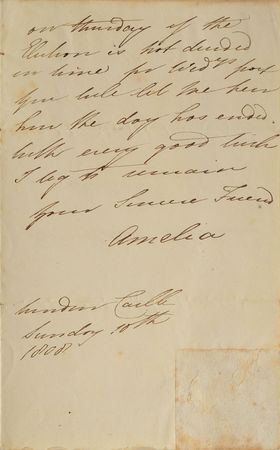 on Thursday if the
Election is not decided
in time for Wed:ys post
You will let me hear
how the day has ended.
with every good wish
I beg to remain
Your Sincere Friend
Amelia
Windsor Castle
Sunday 10th
1808